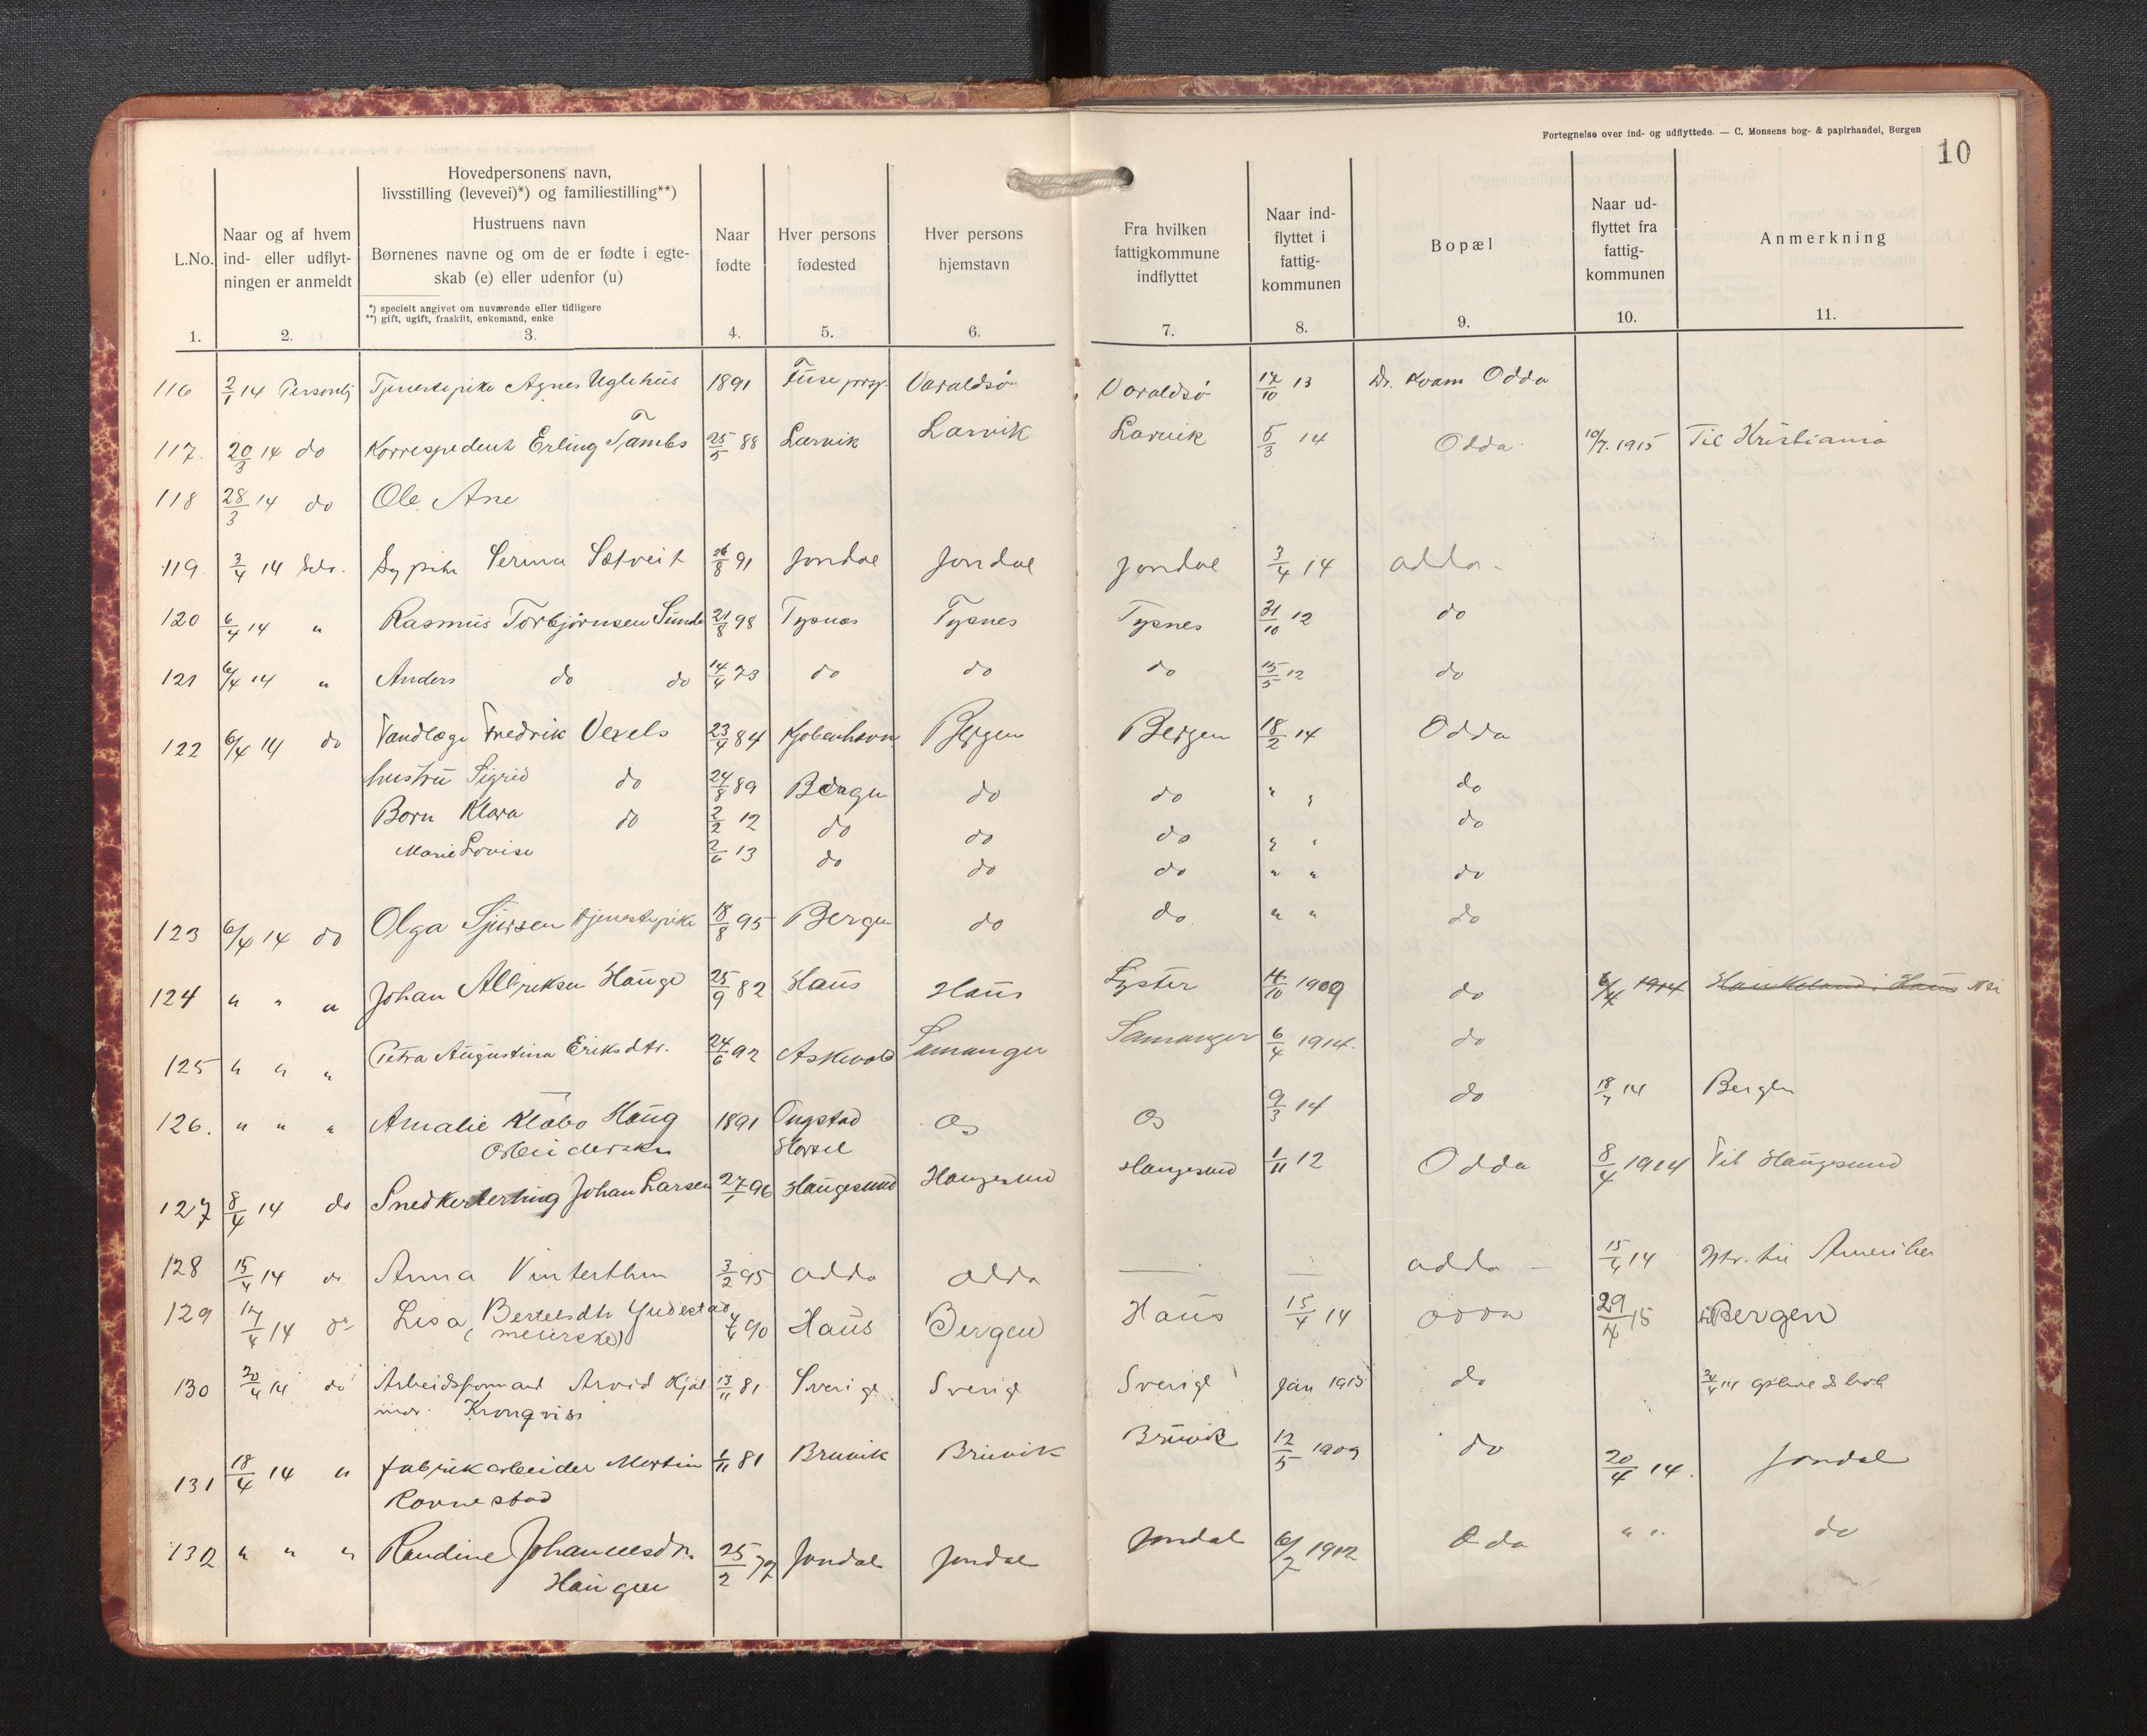 Fortegnelse over ind- og udflyttede. — C. Monsens bog- & papirhandel, Bergen
10
L.No.
1.
Naar og af hvem
ind- eller udflyt-
ningen er anmeldt
2.
Hovedpersonens navn,
livsstilling (levevei)*) og familiestilling**)
Hustruens navn
Børnenes navne og om de er fødte i egte-
skab (e) eller udenfor (u)
*) specielt angivet om nuværende eller tidligere
**) gift, ugift, fraskilt, enkemand, enke
3.
Naar
fødte
4.
Hver persons
fødested
5.
Hver persons
hjemstavn
6.
Fra hvilken
fattigkommune
indflyttet
7.
Naar ind-
flyttet i
fattig-
kommunen
8.
Bopæl
9.
Naar ud-
flyttet fra
fattig-
kommunen
10.
Anmerkning
11.
116 2/1 14 Personlig Tjenestepike Agnes Uglehus 1891 Fuse Varaldsø Varaldsø 17/10 13 Dr. Kvam Odda
117. 20/3 14 do Korrespedent Erling Tambs 25/5 88 Larvik Larvik Larvik 5/3 14 Odda 10/7. 1915 Til Kristiania
118 28/3 14 do Ole Ane
119 3/4 14 Sypike Sætveit 26/8 91 Jondal Jondal Jondal 3/4 14 Odda
120 6/4 14 " Rasmus Torbjørnsen Sunde 21/8 98 Tysnæs Tysnes Tysnes 31/10 12 do
121 6/4 14 " Anders do do 14/4 73 do do do 15/5 12 do
122 6/4 14 do Tandlæge Fredrik Vexels 23/4 84 Kjøbenhavn Bergen Bergen 18/2 14 Odda
hustru Sigrid do 24/8 89 Bergen do do " " do
Børn Klara do 2/2 12 do do do " " do
Marie Lovise 2/6 13 do do do " " do
123 6/4 14 do Olga Sjursen tjenestepike 18/8 95 Bergen do do " " do
124 " " " Johan Albriksen Hauge 25/9 82 Haus Haus Lyster 4/10 1909 do 6/4 1914 Haukeland i Haus
125 " " " Petra Augustina Eriksdtr. 24/6 92 Askevold Samanger Samanger 6/4 1914. do
126. " " " Amalie Klæbo Haug 1891 Os Os 9/3 14 do 18/7 14 Bergen
Arbeiderske
127 8/4 14 do Snedkerlærling Johan Larsen 27/1 96 Haugesund Haugesund Haugesund 1/11 12 Odda 8/4 1914 Til Haugesund
128 15/4 14 do Anna Vinterthun 3/2 95 Odda Odda — — Odda — 15/4 14 til Amerika
129 17/4 14 do Lisa Bertelsdtr 4/4 90 Haus Bergen Haus 15/4 14 Odda 29/4 15 til Bergen
(meierske)
130 20/4 14 do Arbeidsformand Arvid 13/11 81 Sverige Sverige Sverige Jan 1913 do
Kronqvist
131 18/4 14 " Fabrikarbeider Martin 1/11 81 Bruvik Bruvik Bruvik 12/5 1909 do 20/4 14. Jondal
Ravnestad
132 " " " Randine Johannesdtr. 25/2 72 Jondal Jondal Jondal 6/2 1912 Odda " " do
Haugen